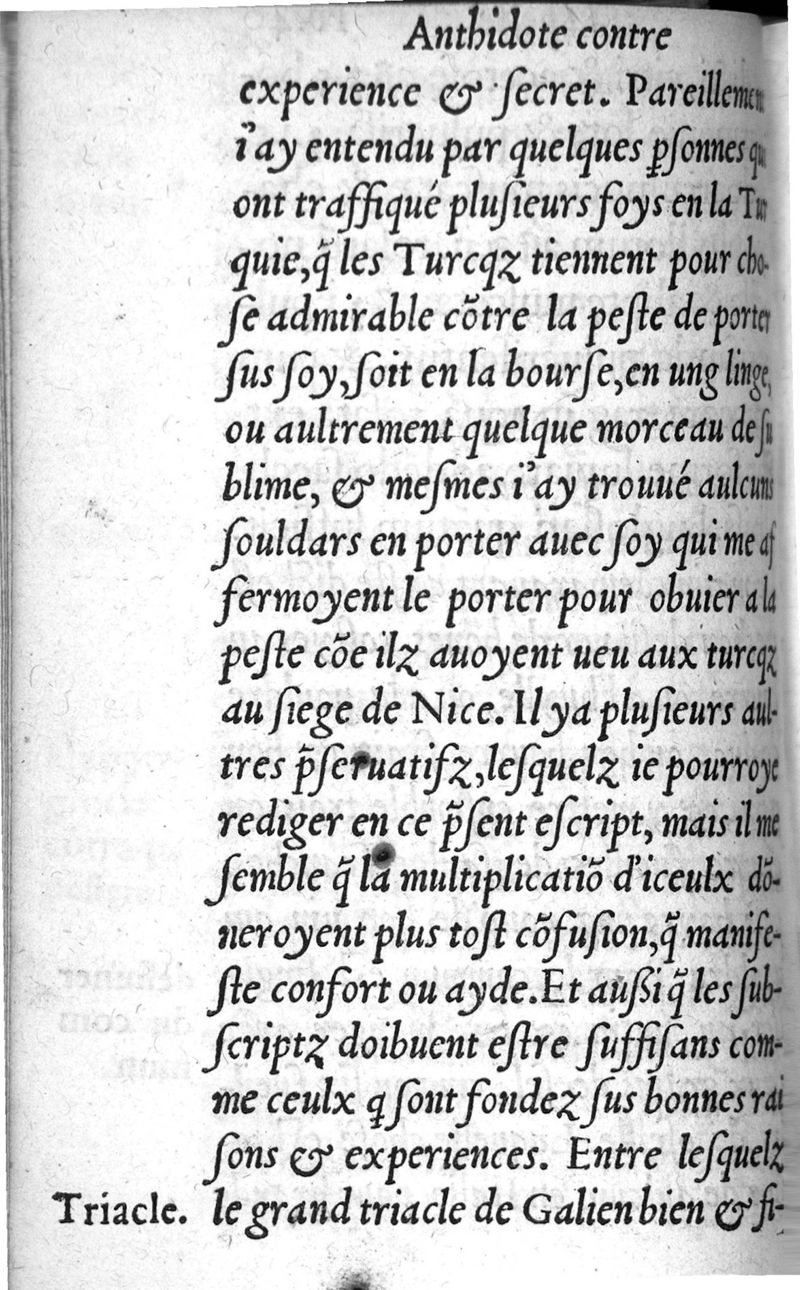 Anthidote contre
experience & ſecret. Pareillement
i'ay entendu par quelques ꝑſonnes qui
ont traffiqué pluſieurs foys en la Tur
quie,q̃ les Turcqz tiennent pour cho-
ſe admirable cõtre la peſte de porter
ſus ſoy,ſoit en la bourſe,en ung linge,
ou aultrement quelque morceau de ſu
blime, & meſmes i'ay trouué aulcuns
ſouldars en porter auec ſoy qui me af
fermoyent le porter pour obuier a la
peſte cõe ilz auoyent ueu aux turcqz
au ſiege de Nice. Il ya pluſieurs aul-
tres p̃ſeruatifz,leſquelz ie pourroye
rediger en ce p̃ſent eſcript, mais il me
ſemble q̃ la multiplicatiõ d'iceulx dõ-
neroyent plus toſt cõfuſion,q̃ manife-
ſte confort ou ayde.Et auſſi q̃ les ſub-
ſcriptz doibuent eſtre ſuffiſans com-
me ceulx ꝗ ſont fondez ſus bonnes rai
ſons & experiences. Entre leſquelz
Triacle. le grand triacle de Galien bien & fi-